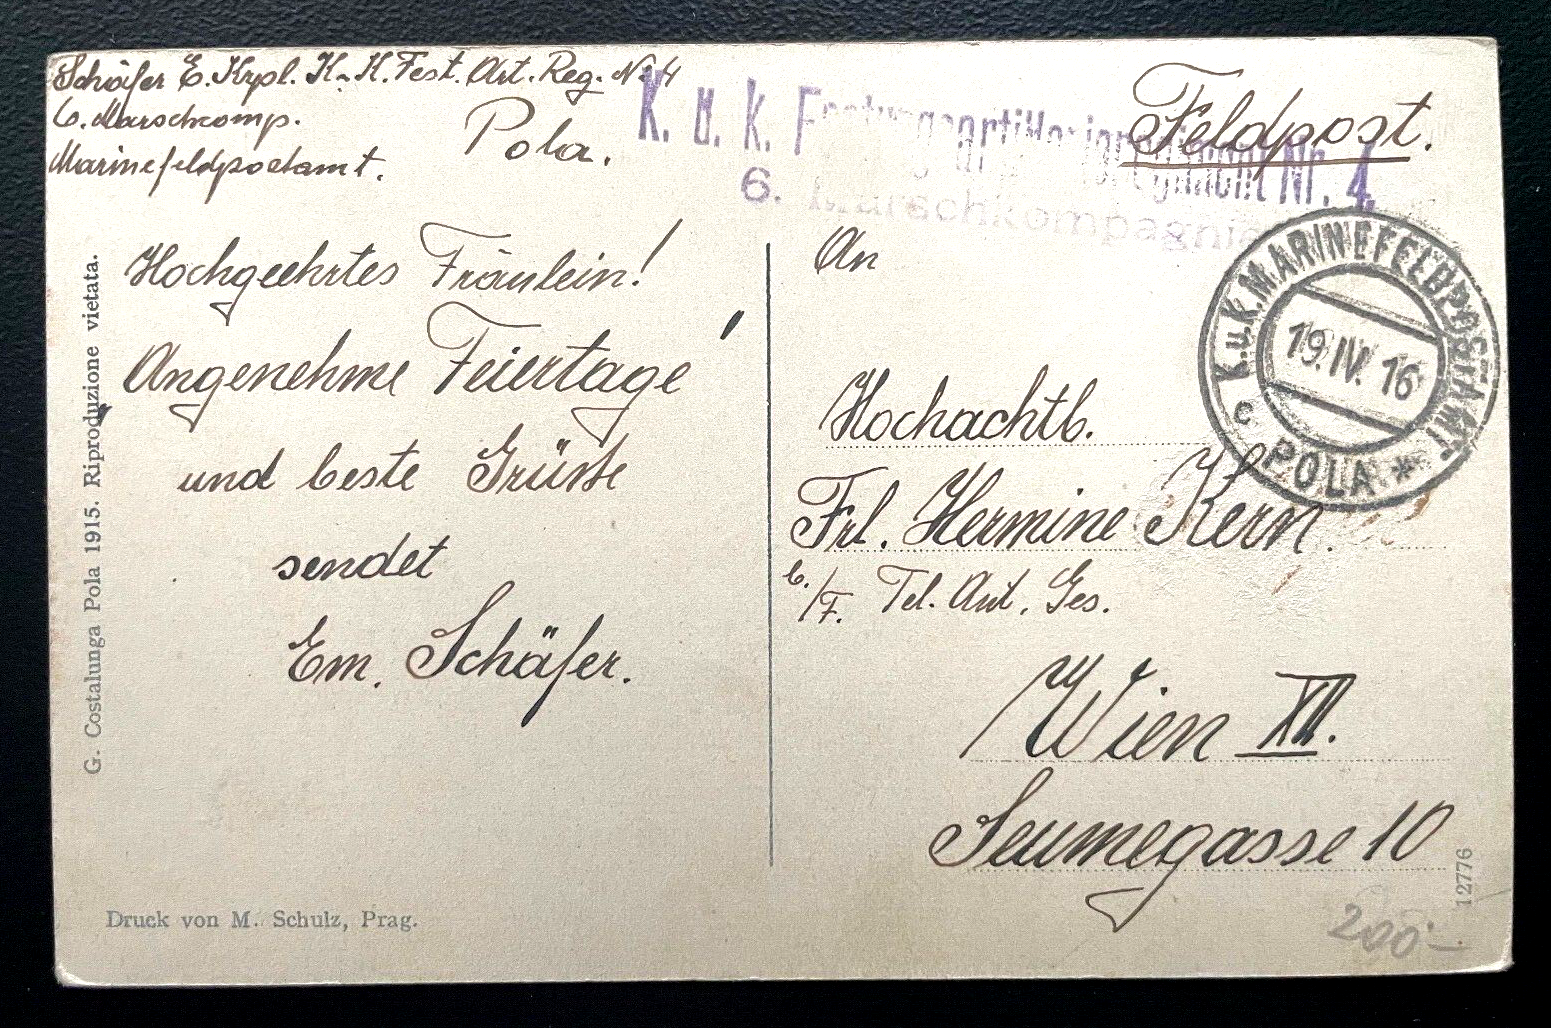 Schäfer E. Krpl. K. u. K. Fest. Art. Reg. No 4
6. Marschkomp.
Pola.
Marinefeldpostamt.
K. u. k. Festungsartillerieregiment Nr. 4.
6. Marschkompagnie
Feldpost.
K.u.K. MARINEFELDPOSTAMT
19.IV.16
c POLA *
Hochgeehrtes Fräulein!
„Angenehme Feiertage"
und beste Grüsse
sendet
Em. Schäfer.
An
Hochachtb.
Frl. Hermine Kern.
Tel. Ges.
Wien XII.
Seumegasse 10
G. Costalunga Pola 1915. Riproduzione vietata.
Druck von M. Schulz, Prag.
12776
200.-